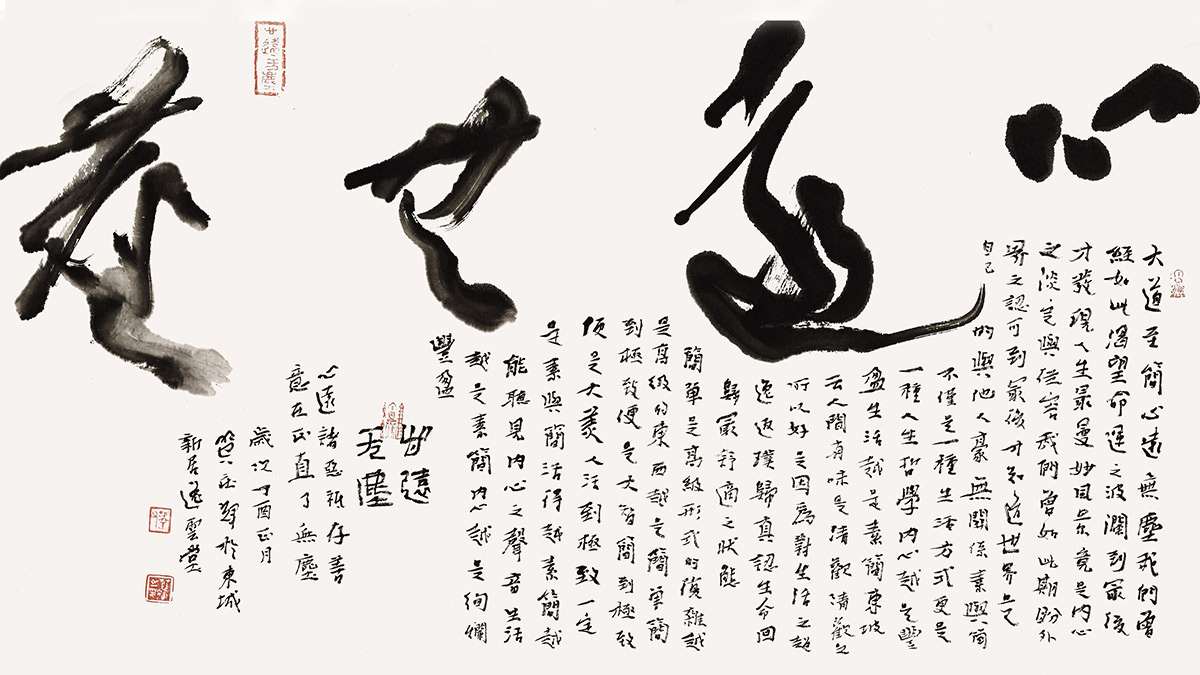 心遠無塵
大道至簡心遠無塵我們曾
經如此渴望命運之波瀾到最後
才發現人生最曼妙風景竟是內心
之淡定與從容我們曾如此期盼外
界之認可到最後才知道世界是
自己
的與他人豪無關係素與簡
不僅是一種生活方式更是
一種人生哲學內心越是豐
盈生活越是素簡東坡
云人間有味是清歡清歡之
所以好是因為對生活之超
逸返璞歸真認生命回
歸最舒適之狀態
簡單是高級形式的復雜越
是高級的東西越是簡單簡
到極致便是大智簡到極致
便是大美人活到極致一定
是素與簡活得越素簡越
能聽見內心之聲音生活
越是素簡內心越是絢爛
豐盈
甘遠
无塵
心遠諸惡難存善
意在正直了無塵
歲次丁酉正月
於東城
新居逸雲堂